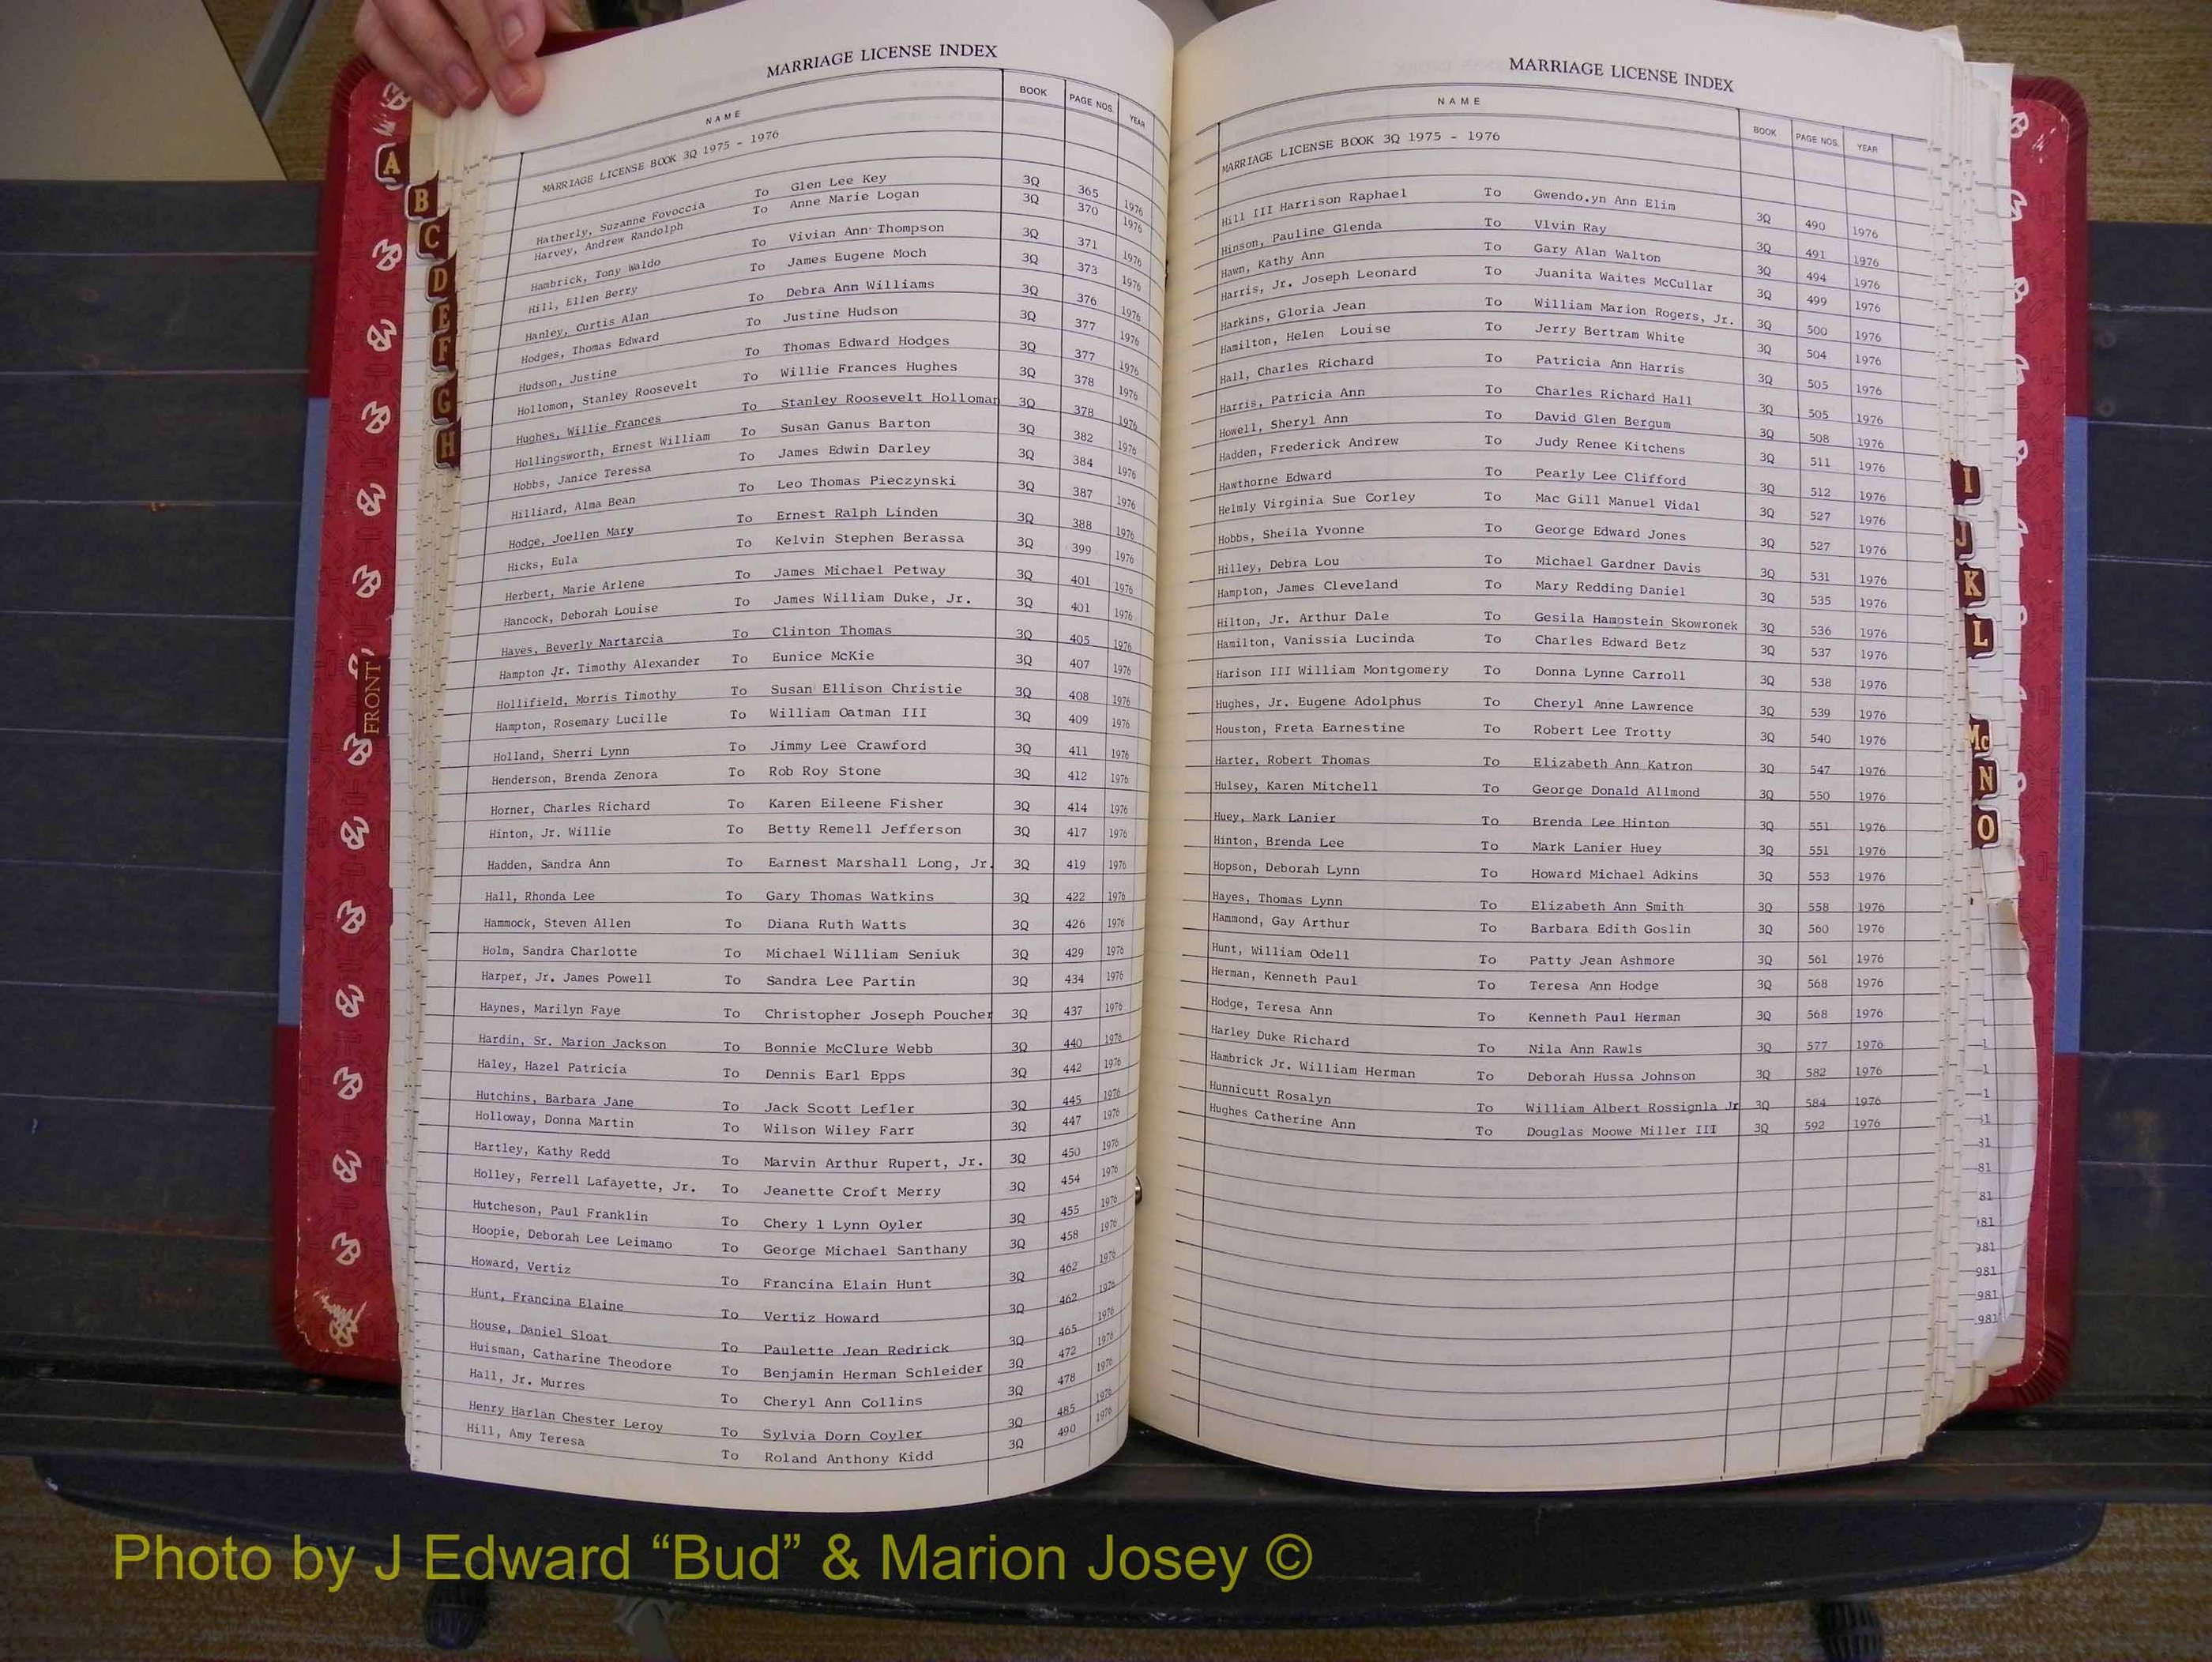 MARRIAGE LICENSE INDEX
NAME BOOK PAGE NOS. YEAR
MARRIAGE LICENSE BOOK 3Q 1975 - 1976
Hatherly, Suzanne Fovoccia To Glen Lee Key 3Q 365 1976
Harvey, Andrew Randolph To Anne Marie Logan 3Q 370 1976
Hambrick, Tony Waldo To Vivian Ann Thompson 3Q 371 1976
Hill, Ellen Berry To James Eugene Moch 3Q 373 1976
Hanley, Curtis Alan To Debra Ann Williams 3Q 376 1976
Hodges, Thomas Edward To Justine Hudson 3Q 377 1976
Hudson, Justine To Thomas Edward Hodges 3Q 377 1976
Hollomon, Stanley Roosevelt To Willie Frances Hughes 3Q 378 1976
Hughes, Willie Frances To Stanley Roosevelt Holloman 3Q 378 1976
Hollingsworth, Ernest William To Susan Ganus Barton 3Q 382 1976
Hobbs, Janice Teressa To James Edwin Darley 3Q 384 1976
Hilliard, Alma Bean To Leo Thomas Pieczynski 3Q 387 1976
Hodge, Joellen Mary To Ernest Ralph Linden 3Q 388 1976
Hicks, Eula To Kelvin Stephen Berassa 3Q 399 1976
Herbert, Marie Arlene To James Michael Petway 3Q 401 1976
Hancock, Deborah Louise To James William Duke, Jr. 3Q 401 1976
Hayes, Beverly Nartarcia To Clinton Thomas 3Q 405 1976
Hampton Jr. Timothy Alexander To Eunice McKie 3Q 407 1976
Hollifield, Morris Timothy To Susan Ellison Christie 3Q 408 1976
Hampton, Rosemary Lucille To William Oatman III 3Q 409 1976
Holland, Sherri Lynn To Jimmy Lee Crawford 3Q 411 1976
Henderson, Brenda Zenora To Rob Roy Stone 3Q 412 1976
Horner, Charles Richard To Karen Eileene Fisher 3Q 414 1976
Hinton, Jr. Willie To Betty Remell Jefferson 3Q 417 1976
Hadden, Sandra Ann To Earnest Marshall Long, Jr. 3Q 419 1976
Hall, Rhonda Lee To Gary Thomas Watkins 3Q 422 1976
Hammock, Steven Allen To Diana Ruth Watts 3Q 426 1976
Holm, Sandra Charlotte To Michael William Seniuk 3Q 429 1976
Harper, Jr. James Powell To Sandra Lee Partin 3Q 434 1976
Haynes, Marilyn Faye To Christopher Joseph Poucher 3Q 437 1976
Hardin, Sr. Marion Jackson To Bonnie McClure Webb 3Q 440 1976
Haley, Hazel Patricia To Dennis Earl Epps 3Q 442 1976
Hutchins, Barbara Jane To Jack Scott Lefler 3Q 445 1976
Holloway, Donna Martin To Wilson Wiley Farr 3Q 447 1976
Hartley, Kathy Redd To Marvin Arthur Rupert, Jr. 3Q 450 1976
Holley, Ferrell Lafayette, Jr. To Jeanette Croft Merry 3Q 454 1976
Hutcheson, Paul Franklin To Chery l Lynn Oyler 3Q 455 1976
Hoopie, Deborah Lee Leimamo To George Michael Santhany 3Q 458 1976
Howard, Vertiz To Francina Elain Hunt 3Q 462 1976
Hunt, Francina Elaine To Vertiz Howard 3Q 462 1976
House, Daniel Sloat To Paulette Jean Redrick 3Q 465 1976
Huisman, Catharine Theodore To Benjamin Herman Schleider 3Q 472 1976
Hall, Jr. Murres To Cheryl Ann Collins 3Q 478 1976
Henry Harlan Chester Leroy To Sylvia Dorn Coyler 3Q 485 1976
Hill, Amy Teresa To Roland Anthony Kidd 3Q 490 1976
MARRIAGE LICENSE INDEX
NAME BOOK PAGE NOS. YEAR
MARRIAGE LICENSE BOOK 3Q 1975 - 1976
Hill III Harrison Raphael To Gwendo.yn Ann Elim 3Q 490 1976
Hinson, Pauline Glenda To Vlvin Ray 3Q 491 1976
Hawn, Kathy Ann To Gary Alan Walton 3Q 494 1976
Harris, Jr. Joseph Leonard To Juanita Waites McCullar 3Q 499 1976
Harkins, Gloria Jean To William Marion Rogers, Jr. 3Q 500 1976
Hamilton, Helen Louise To Jerry Bertram White 3Q 504 1976
Hall, Charles Richard To Patricia Ann Harris 3Q 505 1976
Harris, Patricia Ann To Charles Richard Hall 3Q 505 1976
Howell, Sheryl Ann To David Glen Bergum 3Q 508 1976
Hadden, Frederick Andrew To Judy Renee Kitchens 3Q 511 1976
Hawthorne Edward To Pearly Lee Clifford 3Q 512 1976
Helmly Virginia Sue Corley To Mac Gill Manuel Vidal 3Q 527 1976
Hobbs, Sheila Yvonne To George Edward Jones 3Q 527 1976
Hilley, Debra Lou To Michael Gardner Davis 3Q 531 1976
Hampton, James Cleveland To Mary Redding Daniel 3Q 535 1976
Hilton, Jr. Arthur Dale To Gesila Hamostein Skowronek 3Q 536 1976
Hamilton, Vanissia Lucinda To Charles Edward Betz 3Q 537 1976
Harison III William Montgomery To Donna Lynne Carroll 3Q 538 1976
Hughes, Jr. Eugene Adolphus To Cheryl Anne Lawrence 3Q 539 1976
Houston, Freta Earnestine To Robert Lee Trotty 3Q 540 1976
Harter, Robert Thomas To Elizabeth Ann Katron 3Q 547 1976
Hulsey, Karen Mitchell To George Donald Allmond 3Q 550 1976
Huey, Mark Lanier To Brenda Lee Hinton 3Q 551 1976
Hinton, Brenda Lee To Mark Lanier Huey 3Q 551 1976
Hopson, Deborah Lynn To Howard Michael Adkins 3Q 553 1976
Hayes, Thomas Lynn To Elizabeth Ann Smith 3Q 558 1976
Hammond, Gay Arthur To Barbara Edith Goslin 3Q 560 1976
Hunt, William Odell To Patty Jean Ashmore 3Q 561 1976
Herman, Kenneth Paul To Teresa Ann Hodge 3Q 568 1976
Hodge, Teresa Ann To Kenneth Paul Herman 3Q 568 1976
Harley Duke Richard To Nila Ann Rawls 3Q 577 1976
Hambrick Jr. William Herman To Deborah Hussa Johnson 3Q 582 1976
Hunnicutt Rosalyn To William Albert Rossignla Jr 3Q 584 1976
Hughes Catherine Ann To Douglas Moowe Miller III 3Q 592 1976
A
B
C
D
E
F
G
H
FRONT
I
J
K
L
Mc
N
O
1
1
1
31
31
81
81
981
981
981
981
981
Photo by J Edward “Bud” & Marion Josey ©